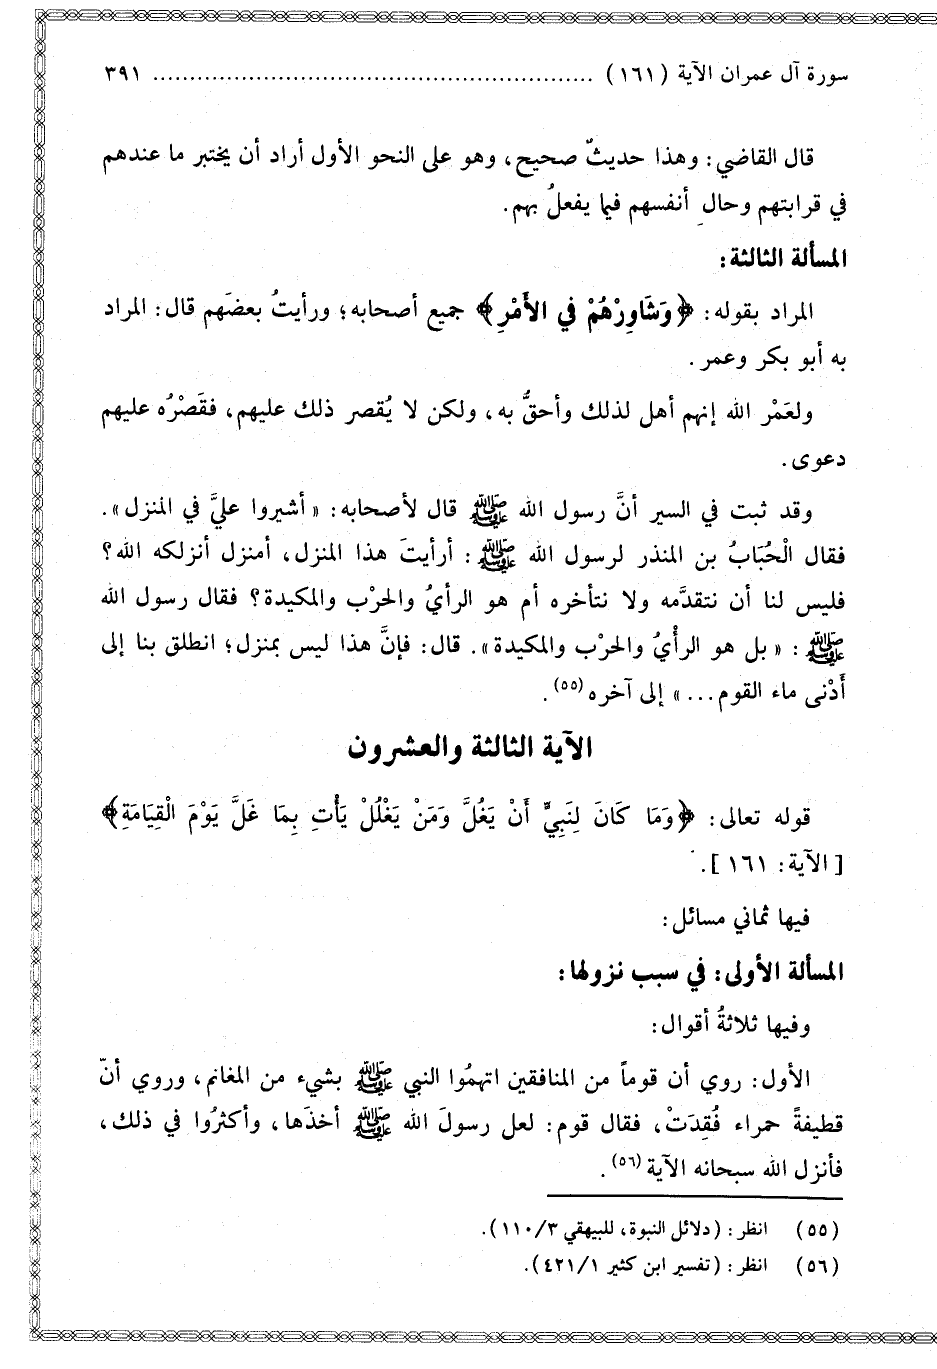 سورة آل عمران الآية (١٦١) ........................................................... ٣٩١
قال القاضي: وهذا حديثٌ صحيح، وهو على النحو الأول أراد أن يختبر ما عندهم
في قرابتهم وحالِ أنفسهم فيما يفعلُ بهم.
المسألة الثالثة:
المراد بقوله: ﴿وَشَاوِرْهُمْ في الأَمْرِ﴾ جميع أصحابه؛ ورأيتُ بعضَهم قال: المراد
به أبو بكر وعمر.
ولعَمْر الله إنهم أهل لذلك وأحقُّ به، ولكن لا يُقصر ذلك عليهم، فقَصْرُه عليهم
دعوى.
وقد ثبت في السير أنَّ رسول الله ﷺ قال لأصحابه: «أشيروا عليَّ في المنزل».
فقال الْحُبَابُ بن المنذر لرسول الله ﷺ: أرأيتَ هذا المنزل، أمنزل أنزلكه الله؟
فليس لنا أن نتقدَّمه ولا نتأخره أم هو الرأيُ والحرْب والمكيدة؟ فقال رسول الله
ﷺ: «بل هو الرأْيُ والحرْب والمكيدة». قال: فإنَّ هذا ليس بمنزل؛ انطلق بنا إلى
أَدْنى ماء القوم...» إلى آخره(٥٥).
الآية الثالثة والعشرون
قوله تعالى: ﴿وَمَا كَانَ لِنَبِيٍّ أَنْ يَغُلَّ وَمَنْ يَغْلُلْ يَأْتِ بِمَا غَلَّ يَوْمَ الْقِيَامَةِ﴾
[الآية: ١٦١].
فيها ثماني مسائل:
المسألة الأولى: في سبب نزولها:
وفيها ثلاثةُ أقوال:
الأول: روي أن قوماً من المنافقين اتهمُوا النبي ﷺ بشيء من المغانم، وروي أنّ
قطيفةً حمراء فُقِدَتْ، فقال قوم: لعل رسولَ الله ﷺ أخذَها، وأكثرُوا في ذلك،
فأنزل الله سبحانه الآية(٥٦).
(٥٥) انظر: (دلائل النبوة، للبيهقي ١١٠/٣).
(٥٦) انظر: (تفسير ابن كثير ٤٢١/١).